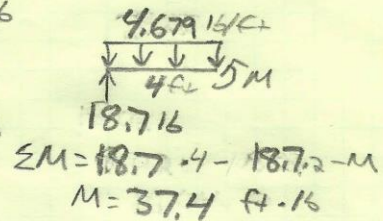 6
4.679 lb/ft
4 ft
M
18.7 lb
ΣM = 18.7 · 4 - 18.7 · 2 - M
M = 37.4 ft · lb